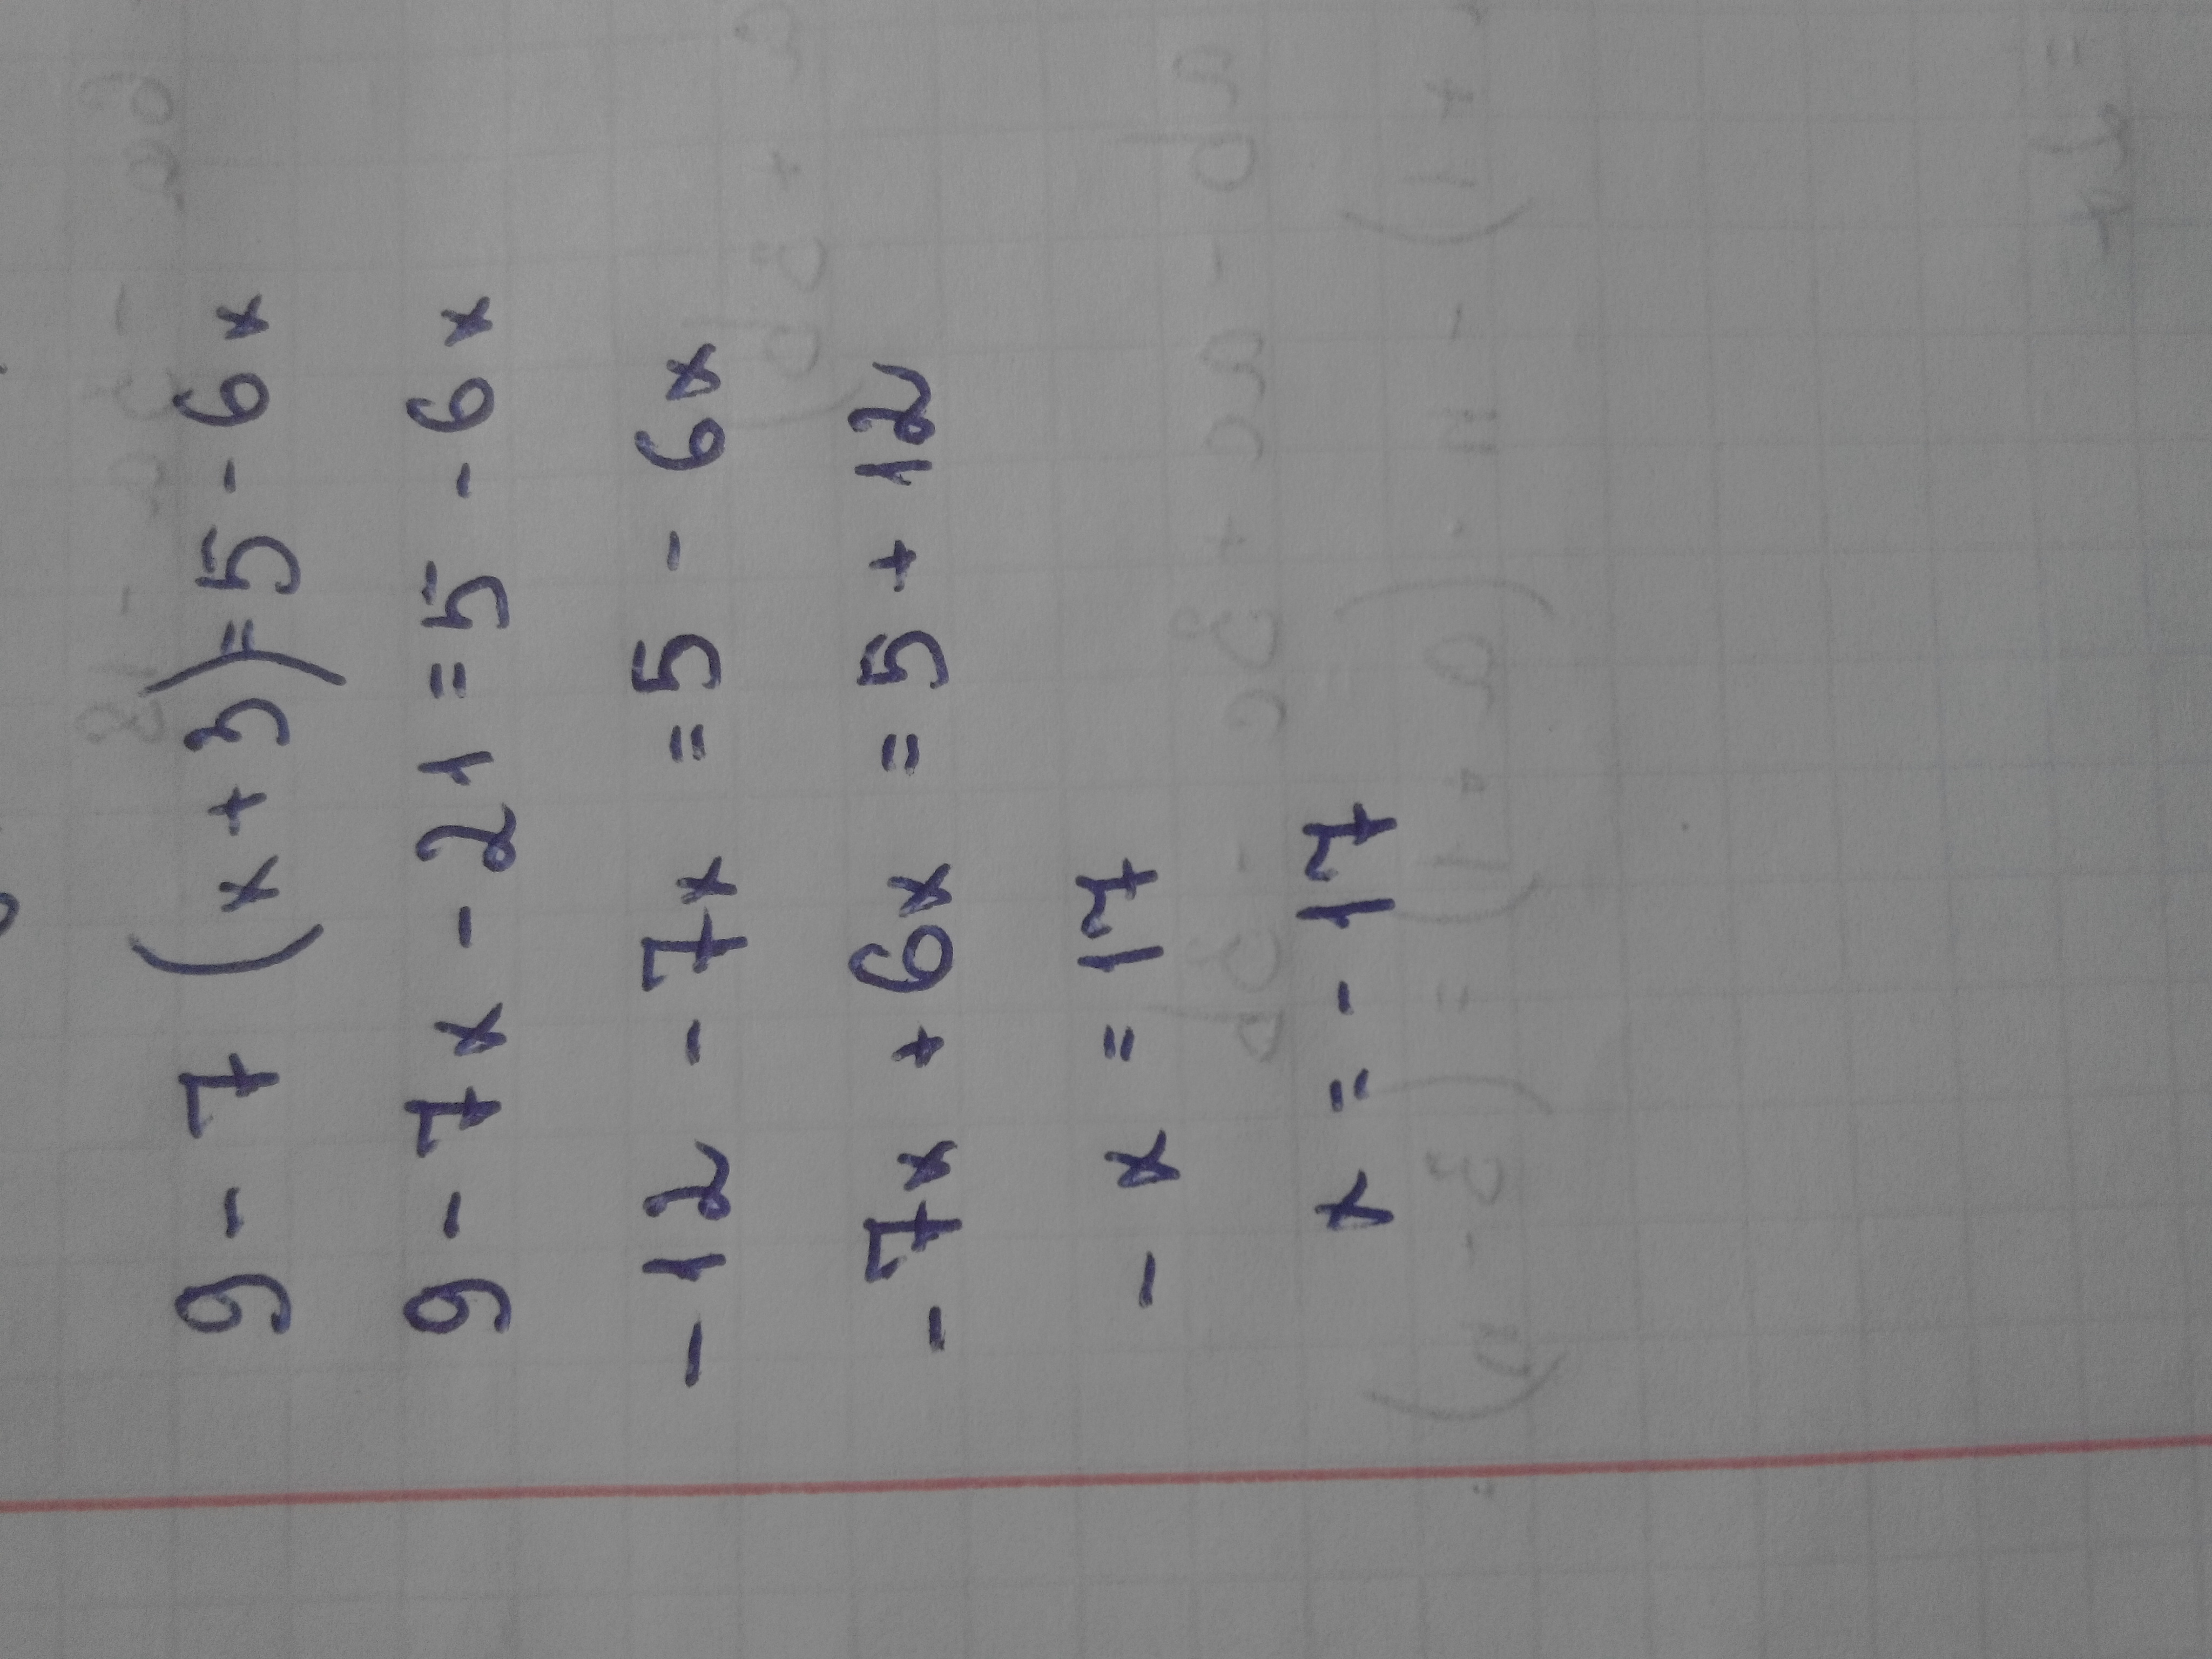 9 - 7 (x + 3) = 5 - 6x
9 - 7x - 21 = 5 - 6x
-12 - 7x = 5 - 6x
-7x + 6x = 5 + 12
- x = 17
x = - 17